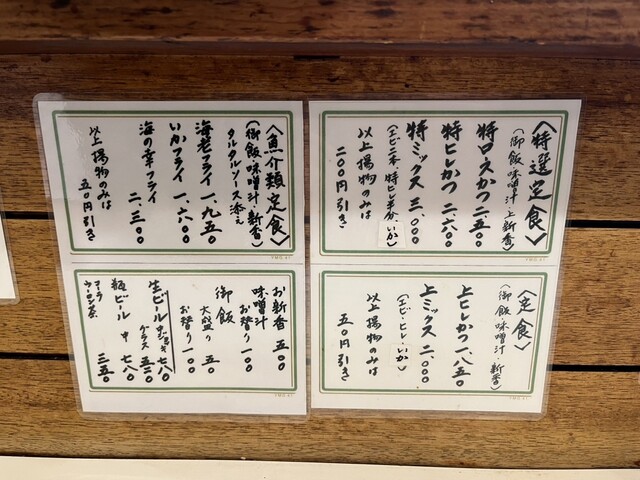 〈特選定食〉
(御飯味噌汁上新香)
特ロースかつ 二、五〇〇
特ヒレかつ 二、六〇〇
特ミックス 三、〇〇〇
(エビ二本、特ヒレ半分、いか)
以上揚物のみは
二〇〇円引き
〈魚介類定食〉
(御飯味噌汁・新香)
タルタルソース添え
海老フライ 一、九五〇
いかフライ 一、六〇〇
海の幸フライ 二、三〇〇
以上揚物のみは
五〇円引き
〈定食〉
(御飯味噌汁・新香)
上ヒレかつ 一、八五〇
上ミックス 二、〇〇〇
(エビ・ヒレ・いか)
以上揚物のみは
五〇円引き
お新香 五〇〇
味噌汁 お替り 一〇〇
御飯 大盛り 五〇
お替り 一〇〇
生ビール 中ジョッキ 七八〇
グラス 五二〇
瓶ビール 中 七八〇
コーラ
ウーロン茶 三五〇